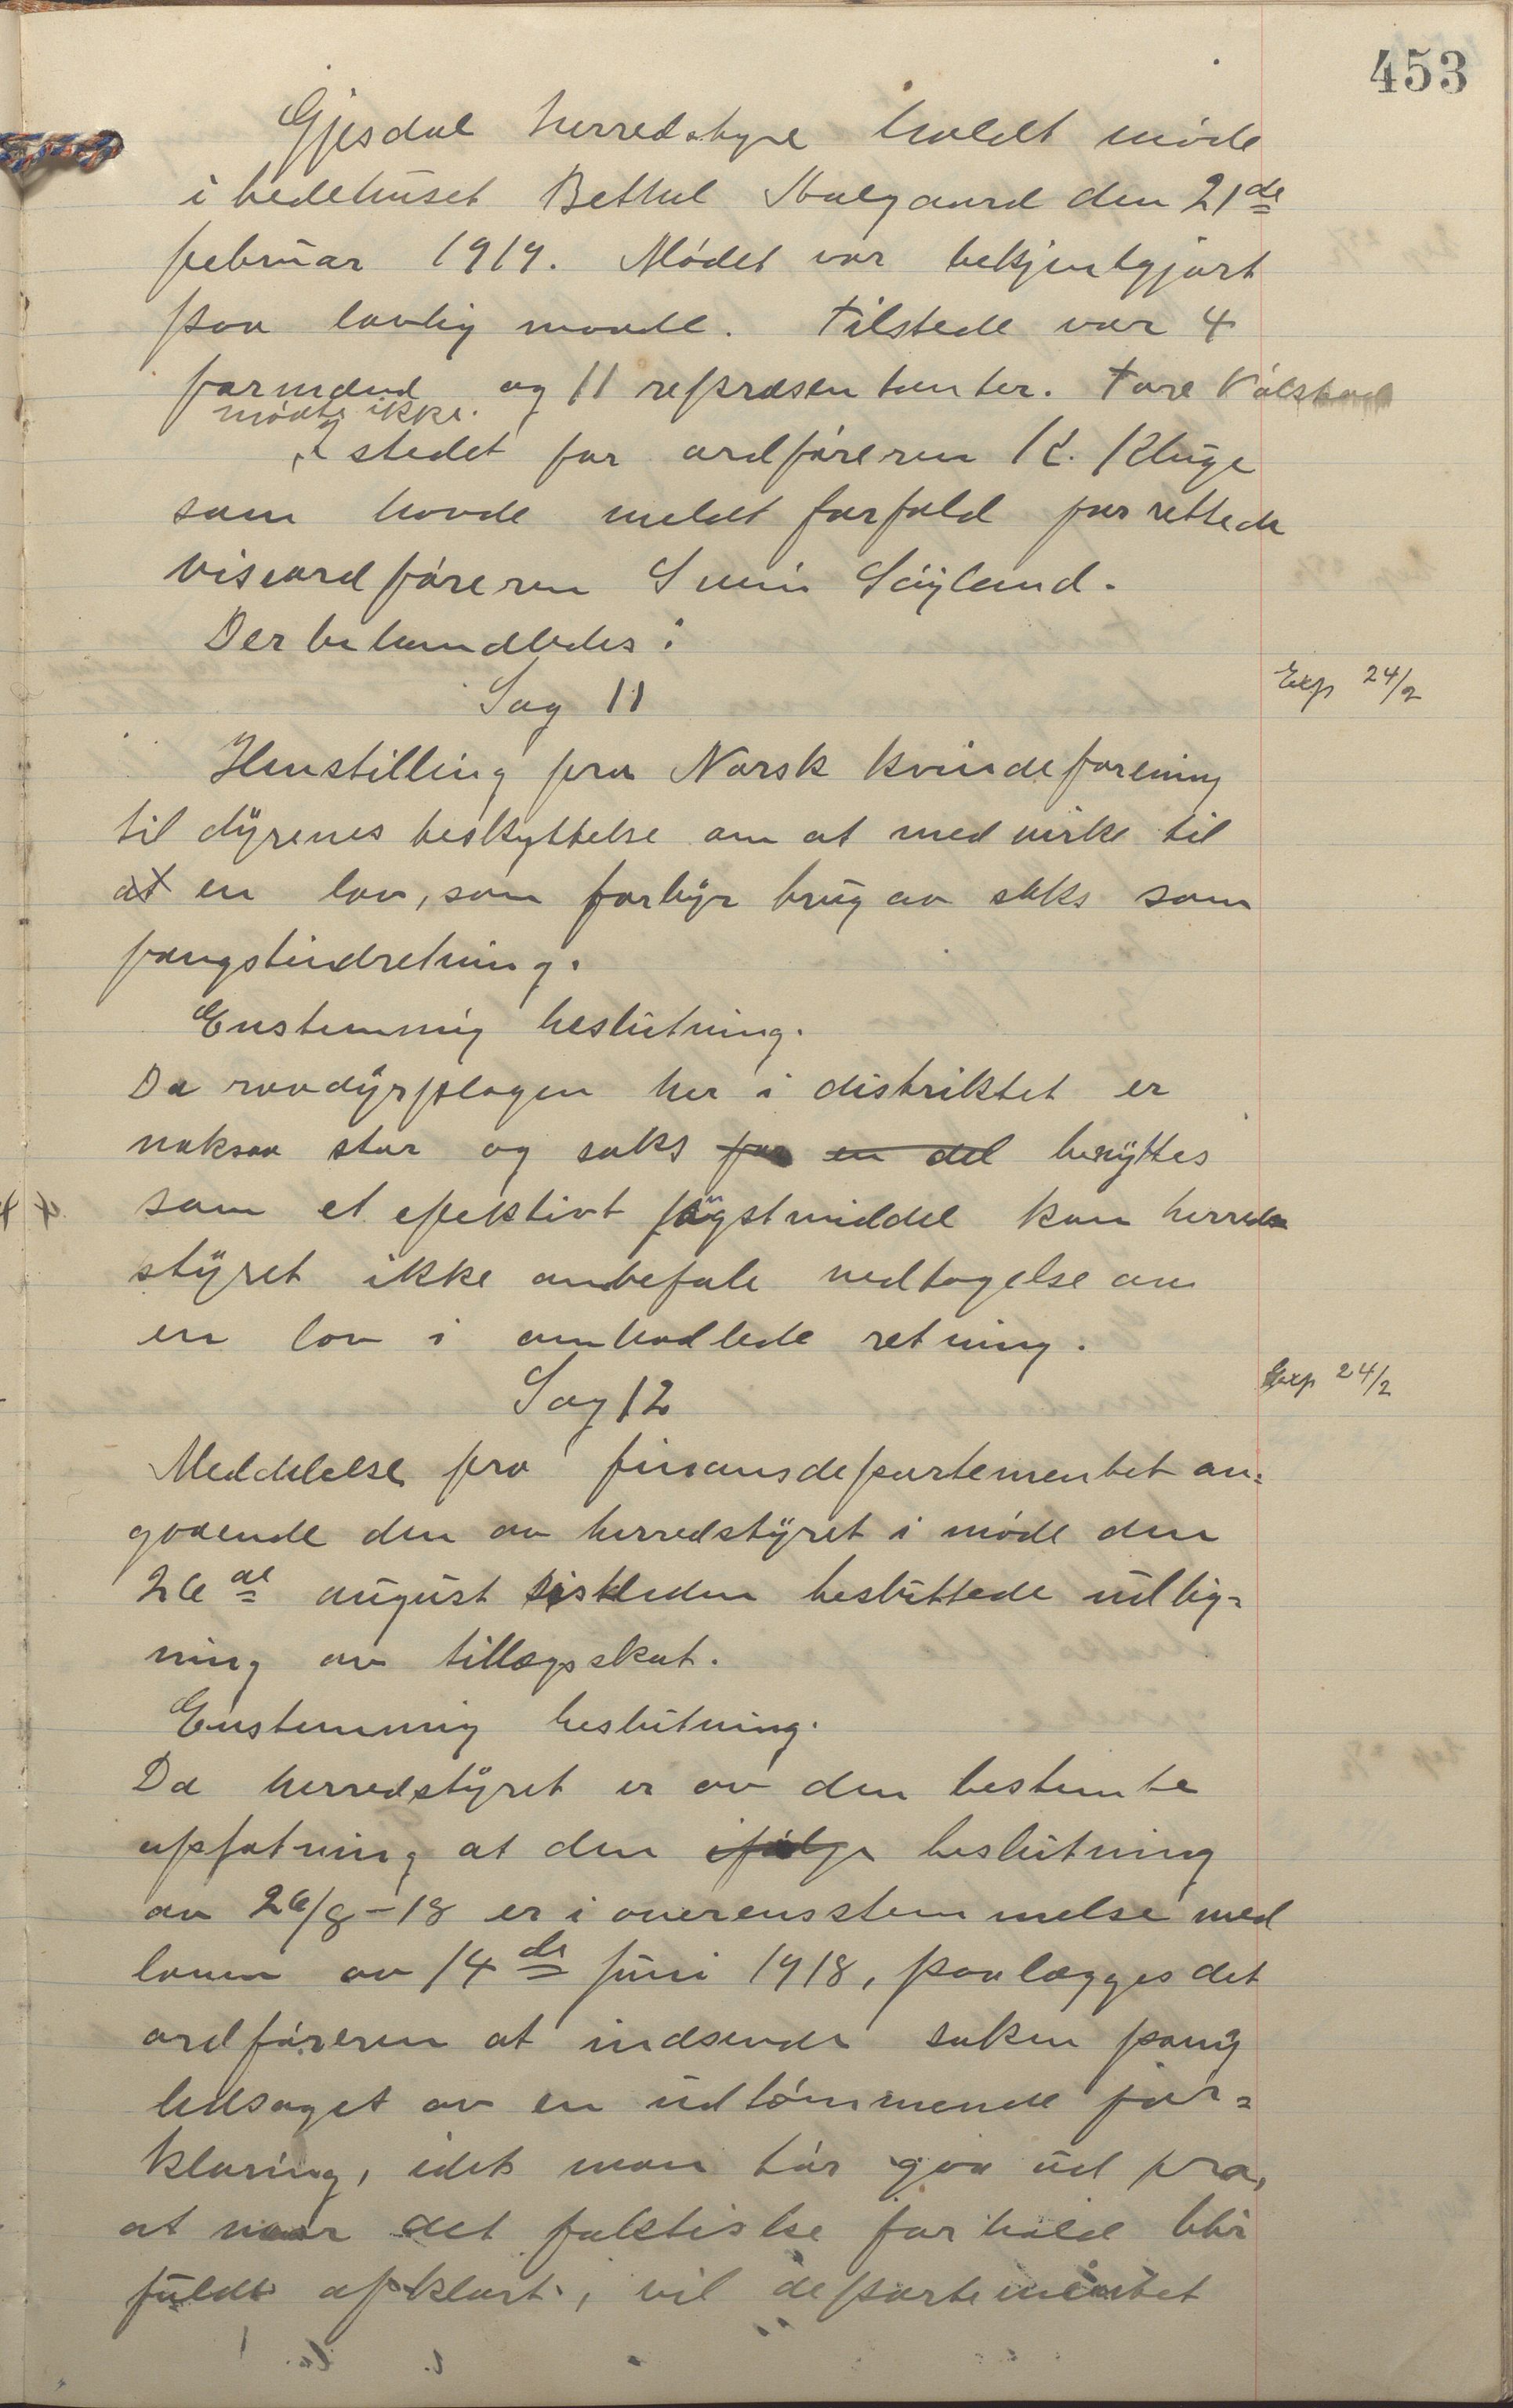 453
Gjesdal herredstyre holdt møde
i bedehuset Bethel Aalgaard den 21de
februar 1919. Mødet var bekjentgjort
paa lovlig maade. Tilstede var 4
formænd og 11 repræsentanter. Tore
mødte ikke.
I stedet for ordføreren K. Kluge
som havde meldt forfald forrettede
viseordføreren Svein Søyland.
Der behandledes:
Sag 11
Exp 24/2
Henstilling fra Norsk kvindeforening
til dyrenes beskyttelse om at medvirke til
at en lov, som forbyr brug av saks som
fangstindretning.
Enstemmig beslutning.
Da rovdyrplagen her i distriktet er
noksaa stor og saks for en del benyttes
som et efektivt fangstmiddel kan herreds
styret ikke anbefale vedtagelse om
en lov i omhadlede retning.
Sag 12
Exp 24/2
Meddelelse fra finansdepartementet an=
gaaende den av herredstyret i møde den
26de august sistleden besluttede utlig=
ning av tillægsskat.
Enstemmig beslutning.
Da herredstyret er av den bestemte
opfatning at den ifølge beslutning
av 26/8-18 er i overensstemmelse med
loven av 14de juni 1918, paalægges det
ordføreren at indsende saken paany
ledsaget av en udtømmende for=
klaring, idet man tør gaa ud fra,
at naar det faktiske forhold blir
fuldt opklart, vil departementet